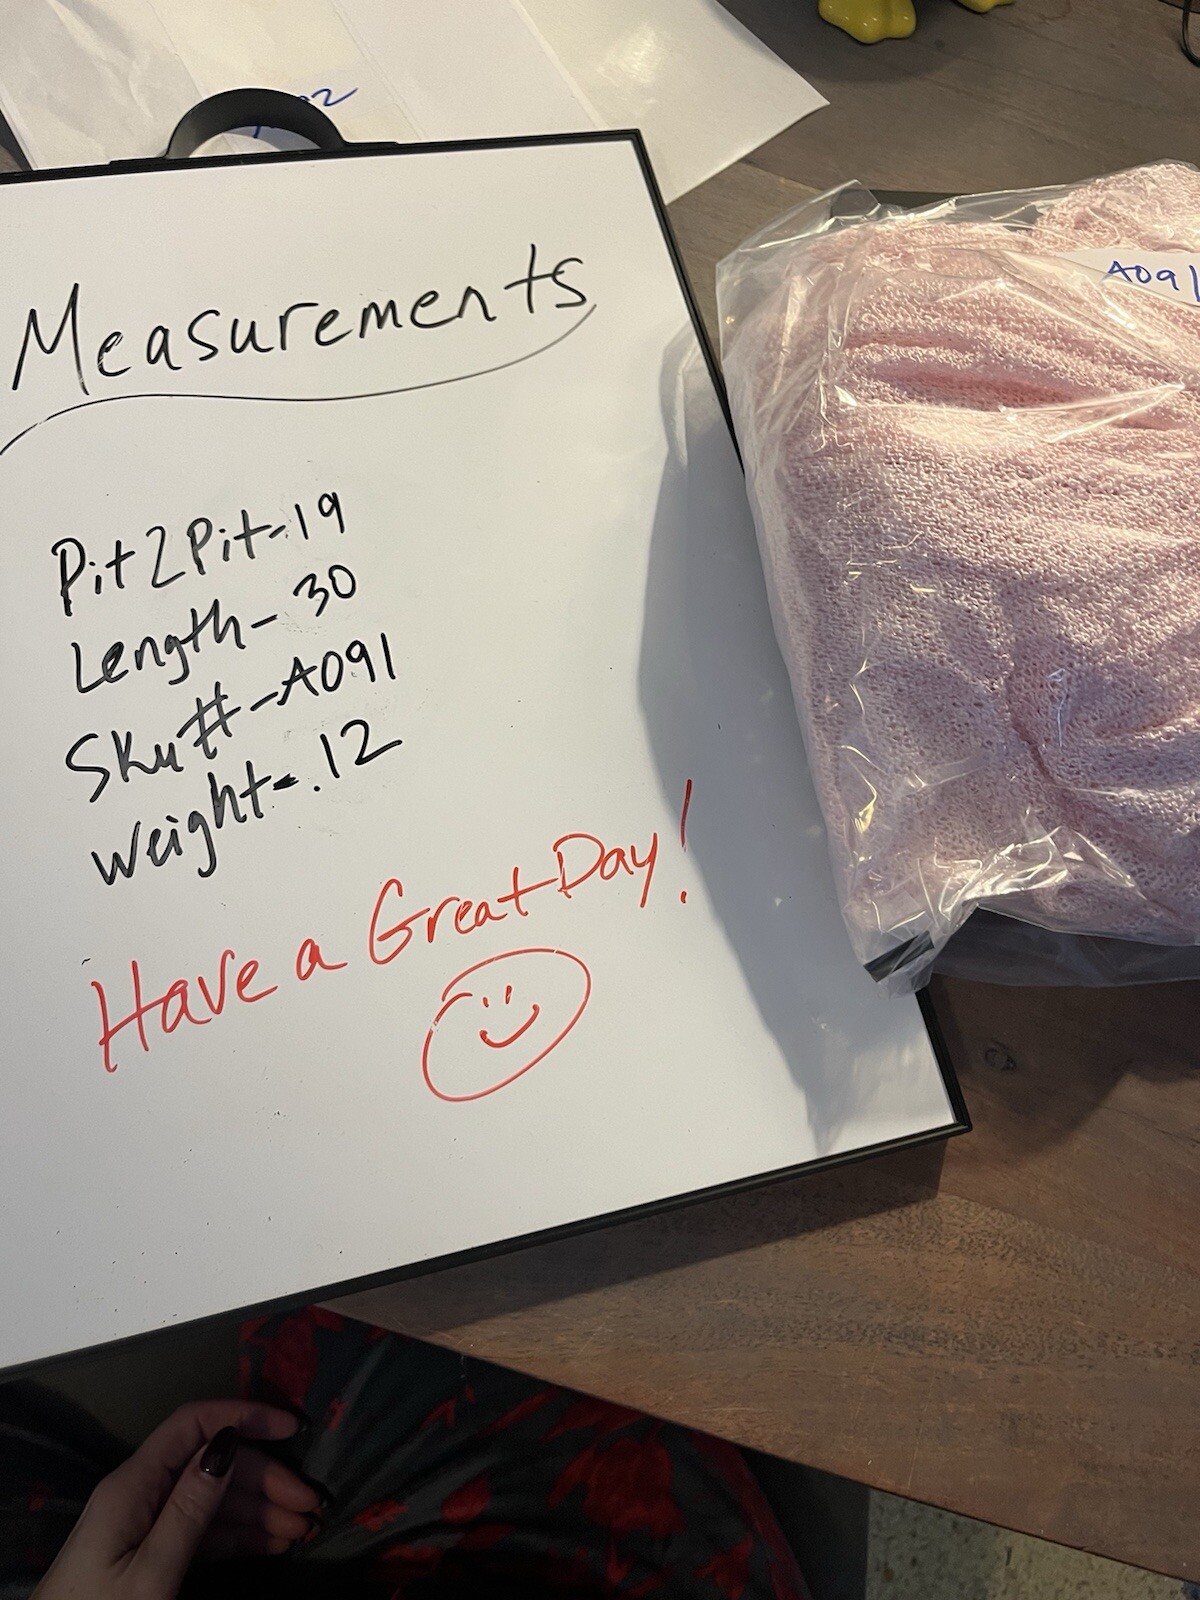 Measurements
Pit2Pit-19
Length-30
Sku#-A091
Weight-.12
Have a Great Day!
A091